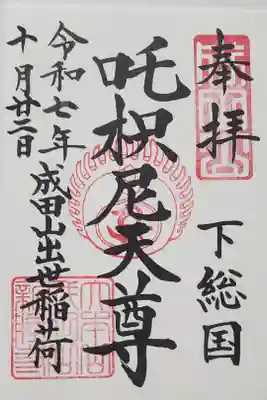 奉拝
下総国
吒枳尼天尊
成田山出世稲荷
令和七年
十月廿二日